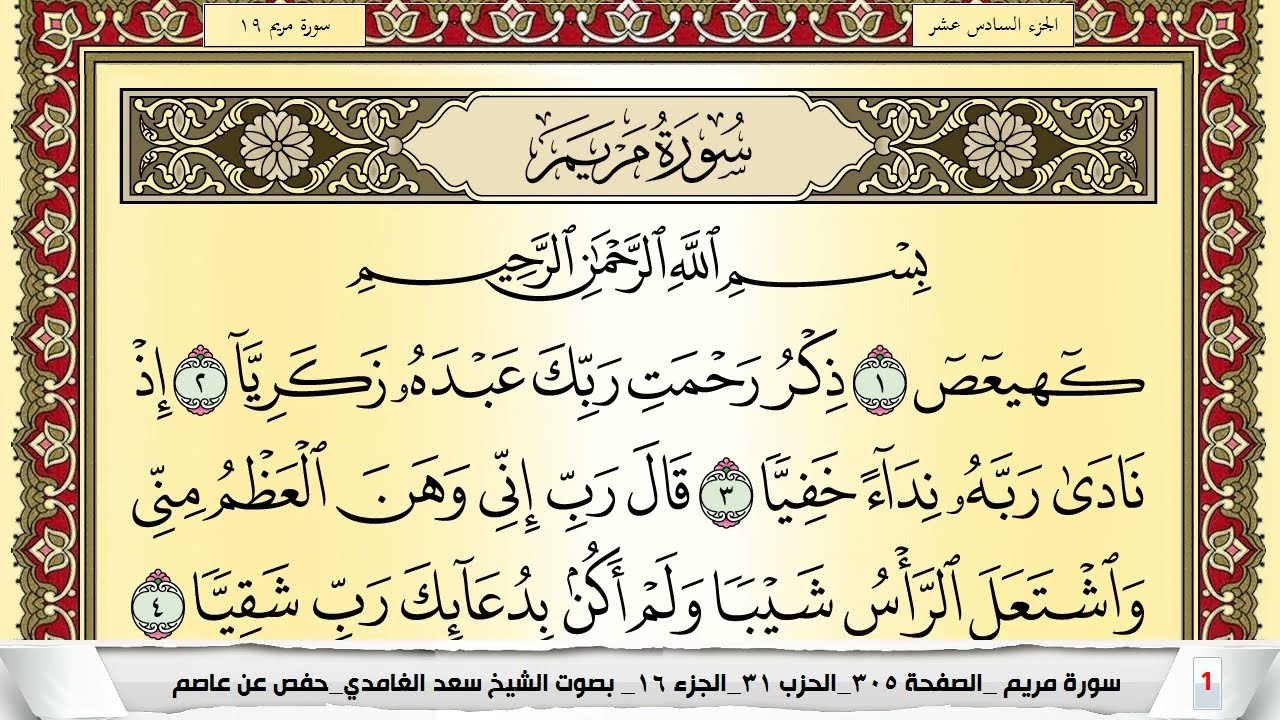 الجزء السادس عشر
سورة مريم ١٩
سُورَةُ مَرْيَمَ
بِسْمِ ٱللَّهِ ٱلرَّحْمَٰنِ ٱلرَّحِيمِ
كٓهيعٓصٓ ١ ذِكْرُ رَحْمَتِ رَبِّكَ عَبْدَهُۥ زَكَرِيَّآ ٢ إِذْ
نَادَىٰ رَبَّهُۥ نِدَآءً خَفِيًّا ٣ قَالَ رَبِّ إِنِّي وَهَنَ ٱلْعَظْمُ مِنِّي
وَٱشْتَعَلَ ٱلرَّأْسُ شَيْبًا وَلَمْ أَكُنۢ بِدُعَآئِكَ رَبِّ شَقِيًّا ٤
1 سورة مريم _الصفحة ٣٠٥_الحزب ٣١_الجزء ١٦_ بصوت الشيخ سعد الغامدي_حفص عن عاصم